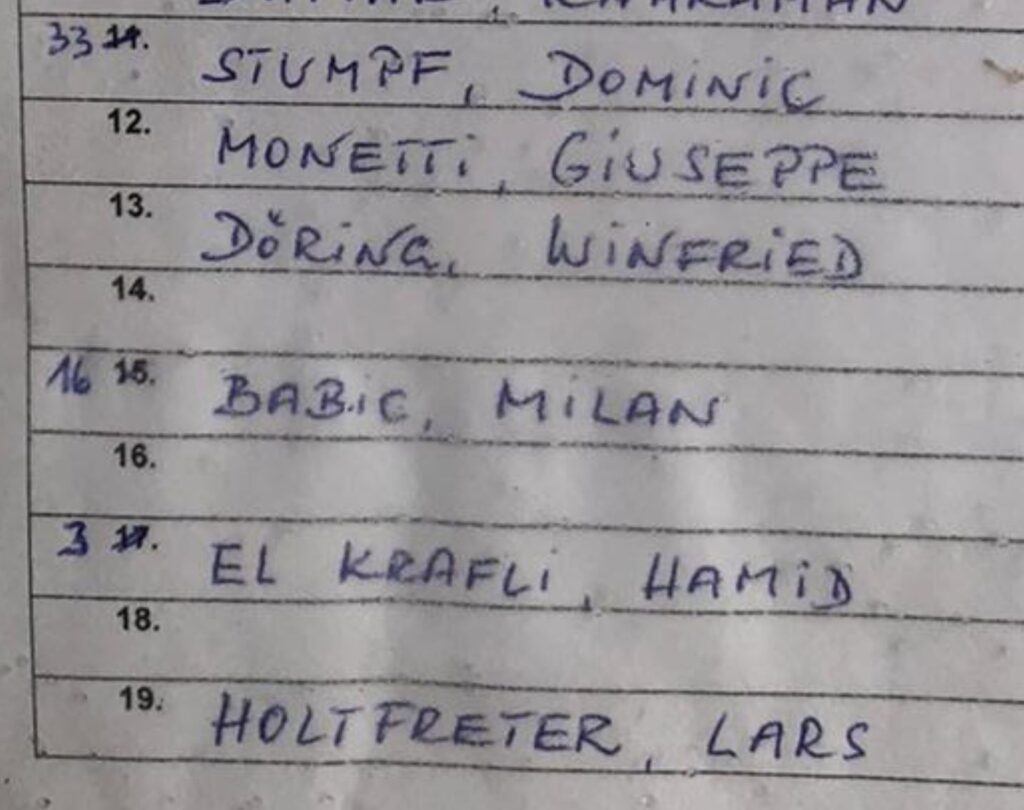 KAHRAMAN
33 11. STUMPF, DOMINIC
12. MONETTI, GIUSEPPE
13. DÖRING, WINFRIED
14.
16 15. BABIC, MILAN
16.
3 17. EL KRAFLI, HAMID
18.
19. HOLTFRETER, LARS